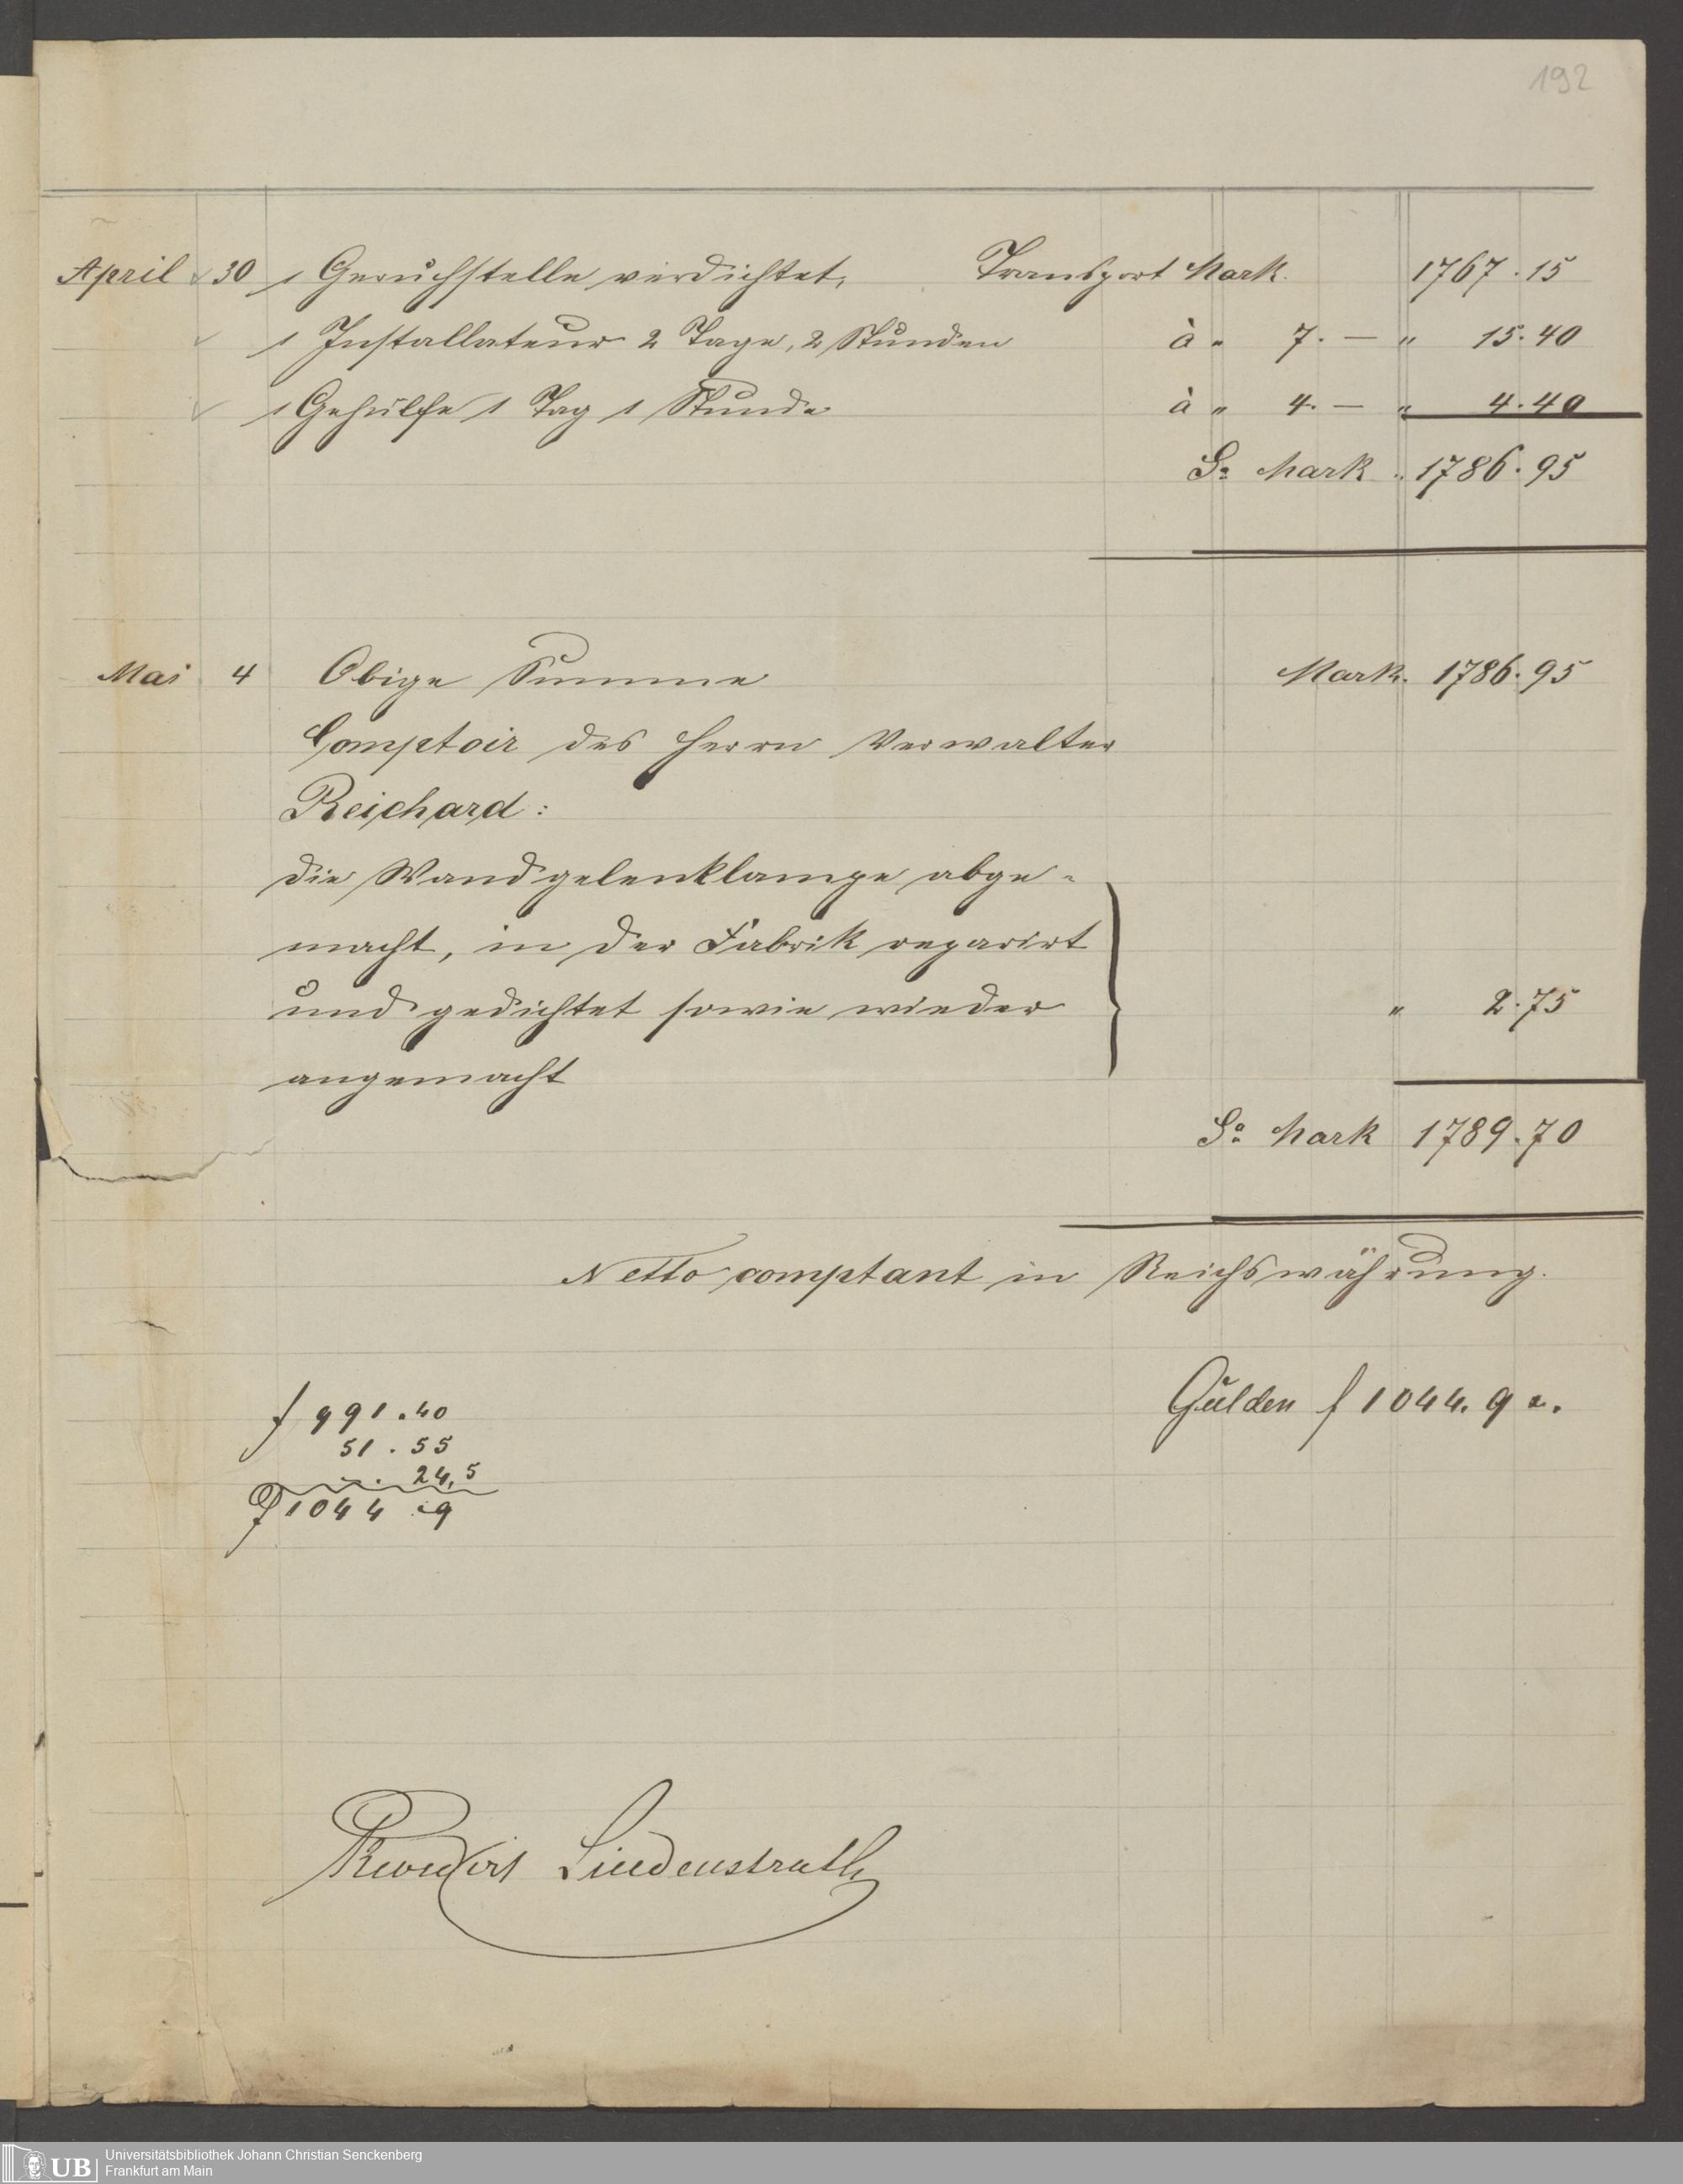 192
April 30 1 Geruchstelle verdichtet, Transport Mark. 1767.15
1 Installateur 2 Tage, 2 Stunden à „ 7. — „ 15.40
1 Gehülfe 1 Tag 1 Stunde à „ 4. — „ 4.40
Sa Mark „ 1786.95
Mai 4 Obige Summe Mark. 1786.95
Comptoir des Herrn Verwalter
Reichard:
die Wandgelenklampe abge-
macht, in der Fabrik reparirt
und gedichtet sowie wieder „ 2.75
angemacht
Sa Mark 1789.70
Netto comptant in Reichswährung.
Gulden f 1044. 9 x.
f 991.40
51.55
—. 24,5
f 1044 .9
Revidirt Lindenstruth
UB Universitätsbibliothek Johann Christian Senckenberg
Frankfurt am Main